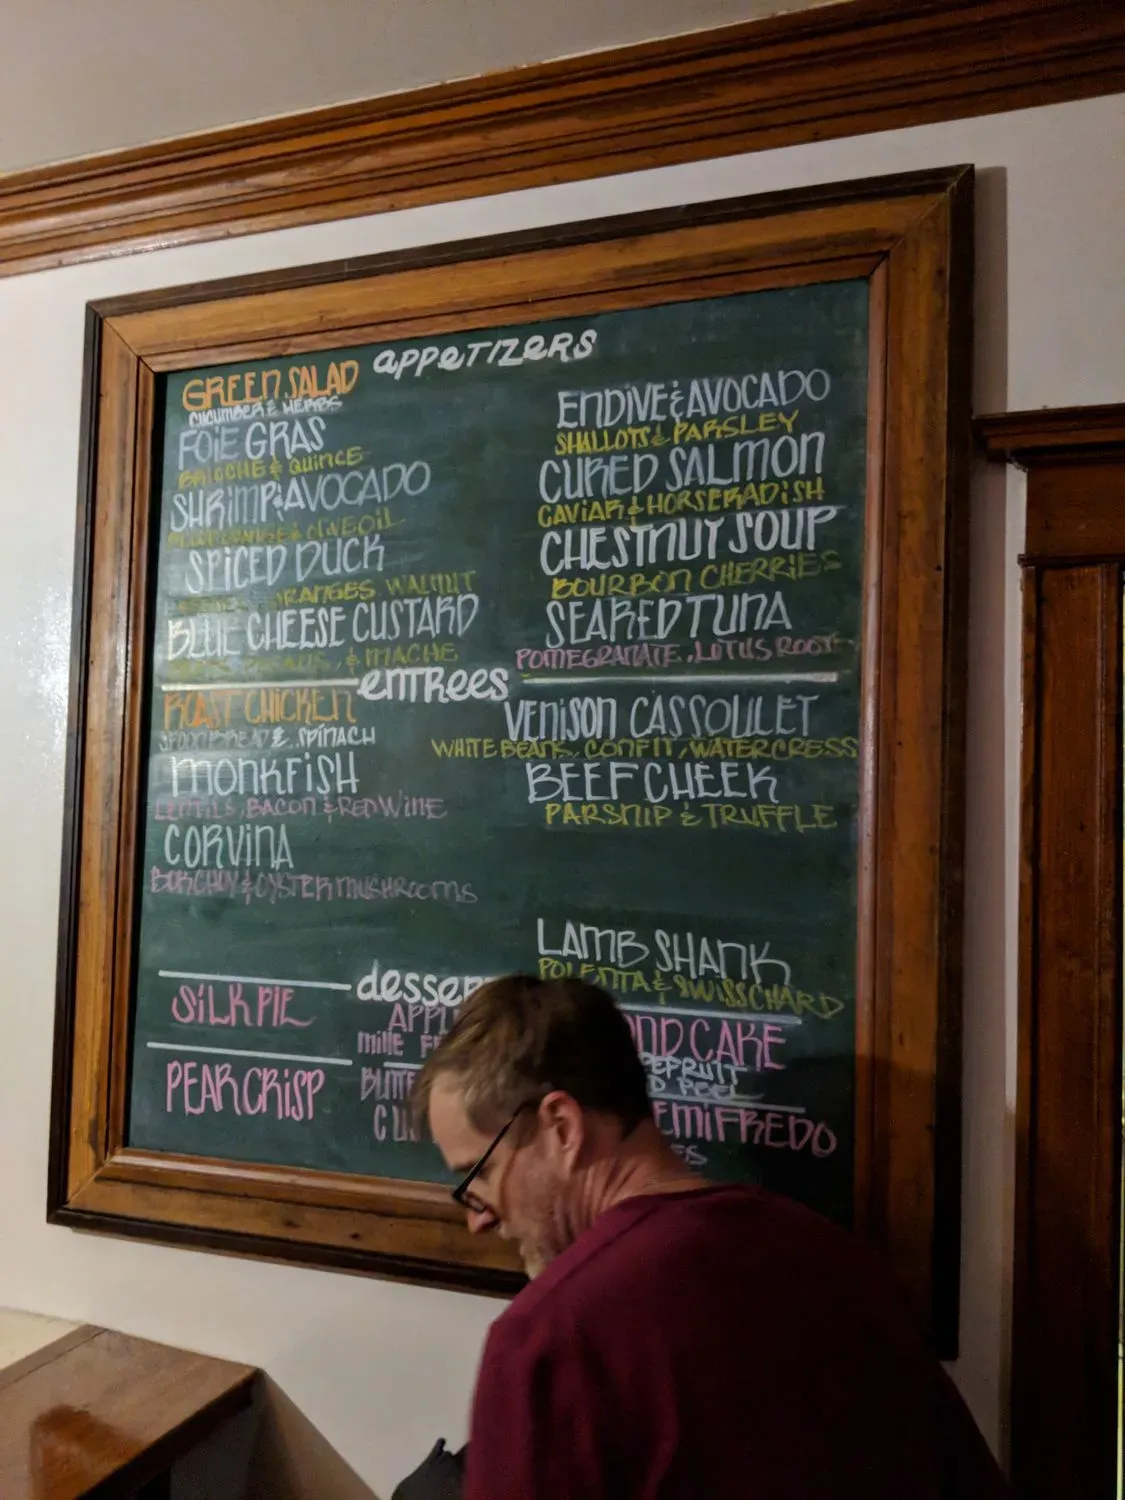 appetizers
GREEN SALAD
CUCUMBER & HERBS
FOIE GRAS
BRIOCHE & QUINCE
SHRIMP & AVOCADO
& OLIVE OIL
SPICED DUCK
ORANGES, WALNUT
BLUE CHEESE CUSTARD
& MACHE
ENDIVE & AVOCADO
SHALLOTS & PARSLEY
CURED SALMON
CAVIAR & HORSERADISH
CHESTNUT SOUP
BOURBON CHERRIES
SEARED TUNA
POMEGRANATE, LOTUS ROOT
entrees
ROAST CHICKEN
SPOONBREAD & SPINACH
MONKFISH
LENTILS, BACON & RED WINE
CORVINA
BOK CHOY & OYSTER MUSHROOMS
VENISON CASSOULET
WHITE BEANS, CONFIT, WATERCRESS
BEEF CHEEK
PARSNIP & TRUFFLE
LAMB SHANK
POLENTA & SWISS CHARD
desser
SILK PIE
PEAR CRISP
APPL
MILLE FE
BUTTE
CU
ND CAKE
PEFRUIT
D PEEL
EMIFREDO
ES